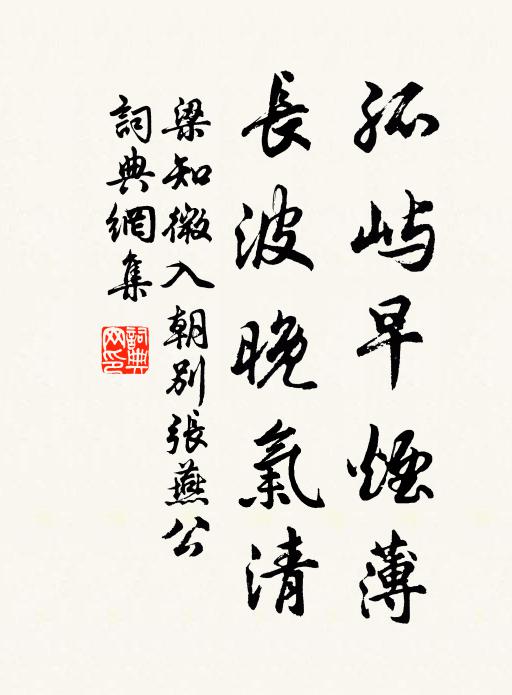 孤屿早煙薄
長波晚氣清
梁知微入朝別張燕公
詞典網集
詞典網印